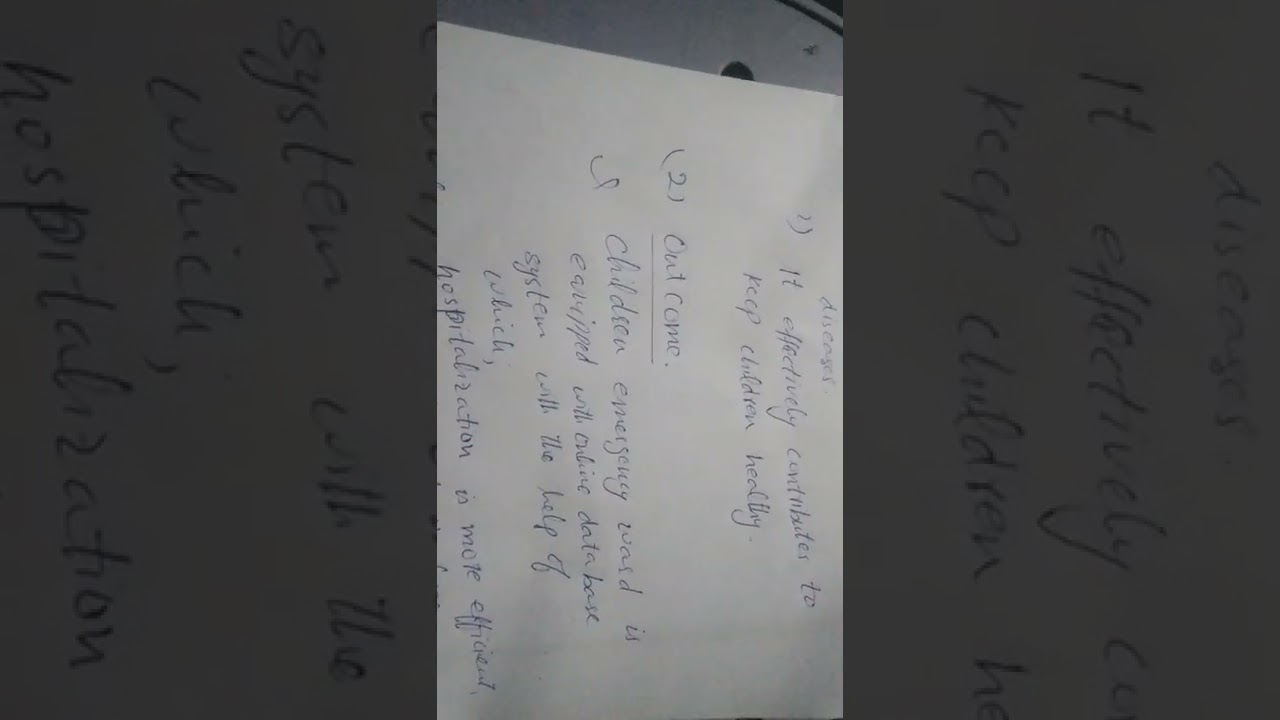 diseases.
2) It effectively contributes to
keep children healthy.
(2) Outcome.
Children emergency ward is
equipped with online data base
system with the help of
which,
hospitalization is more efficient,